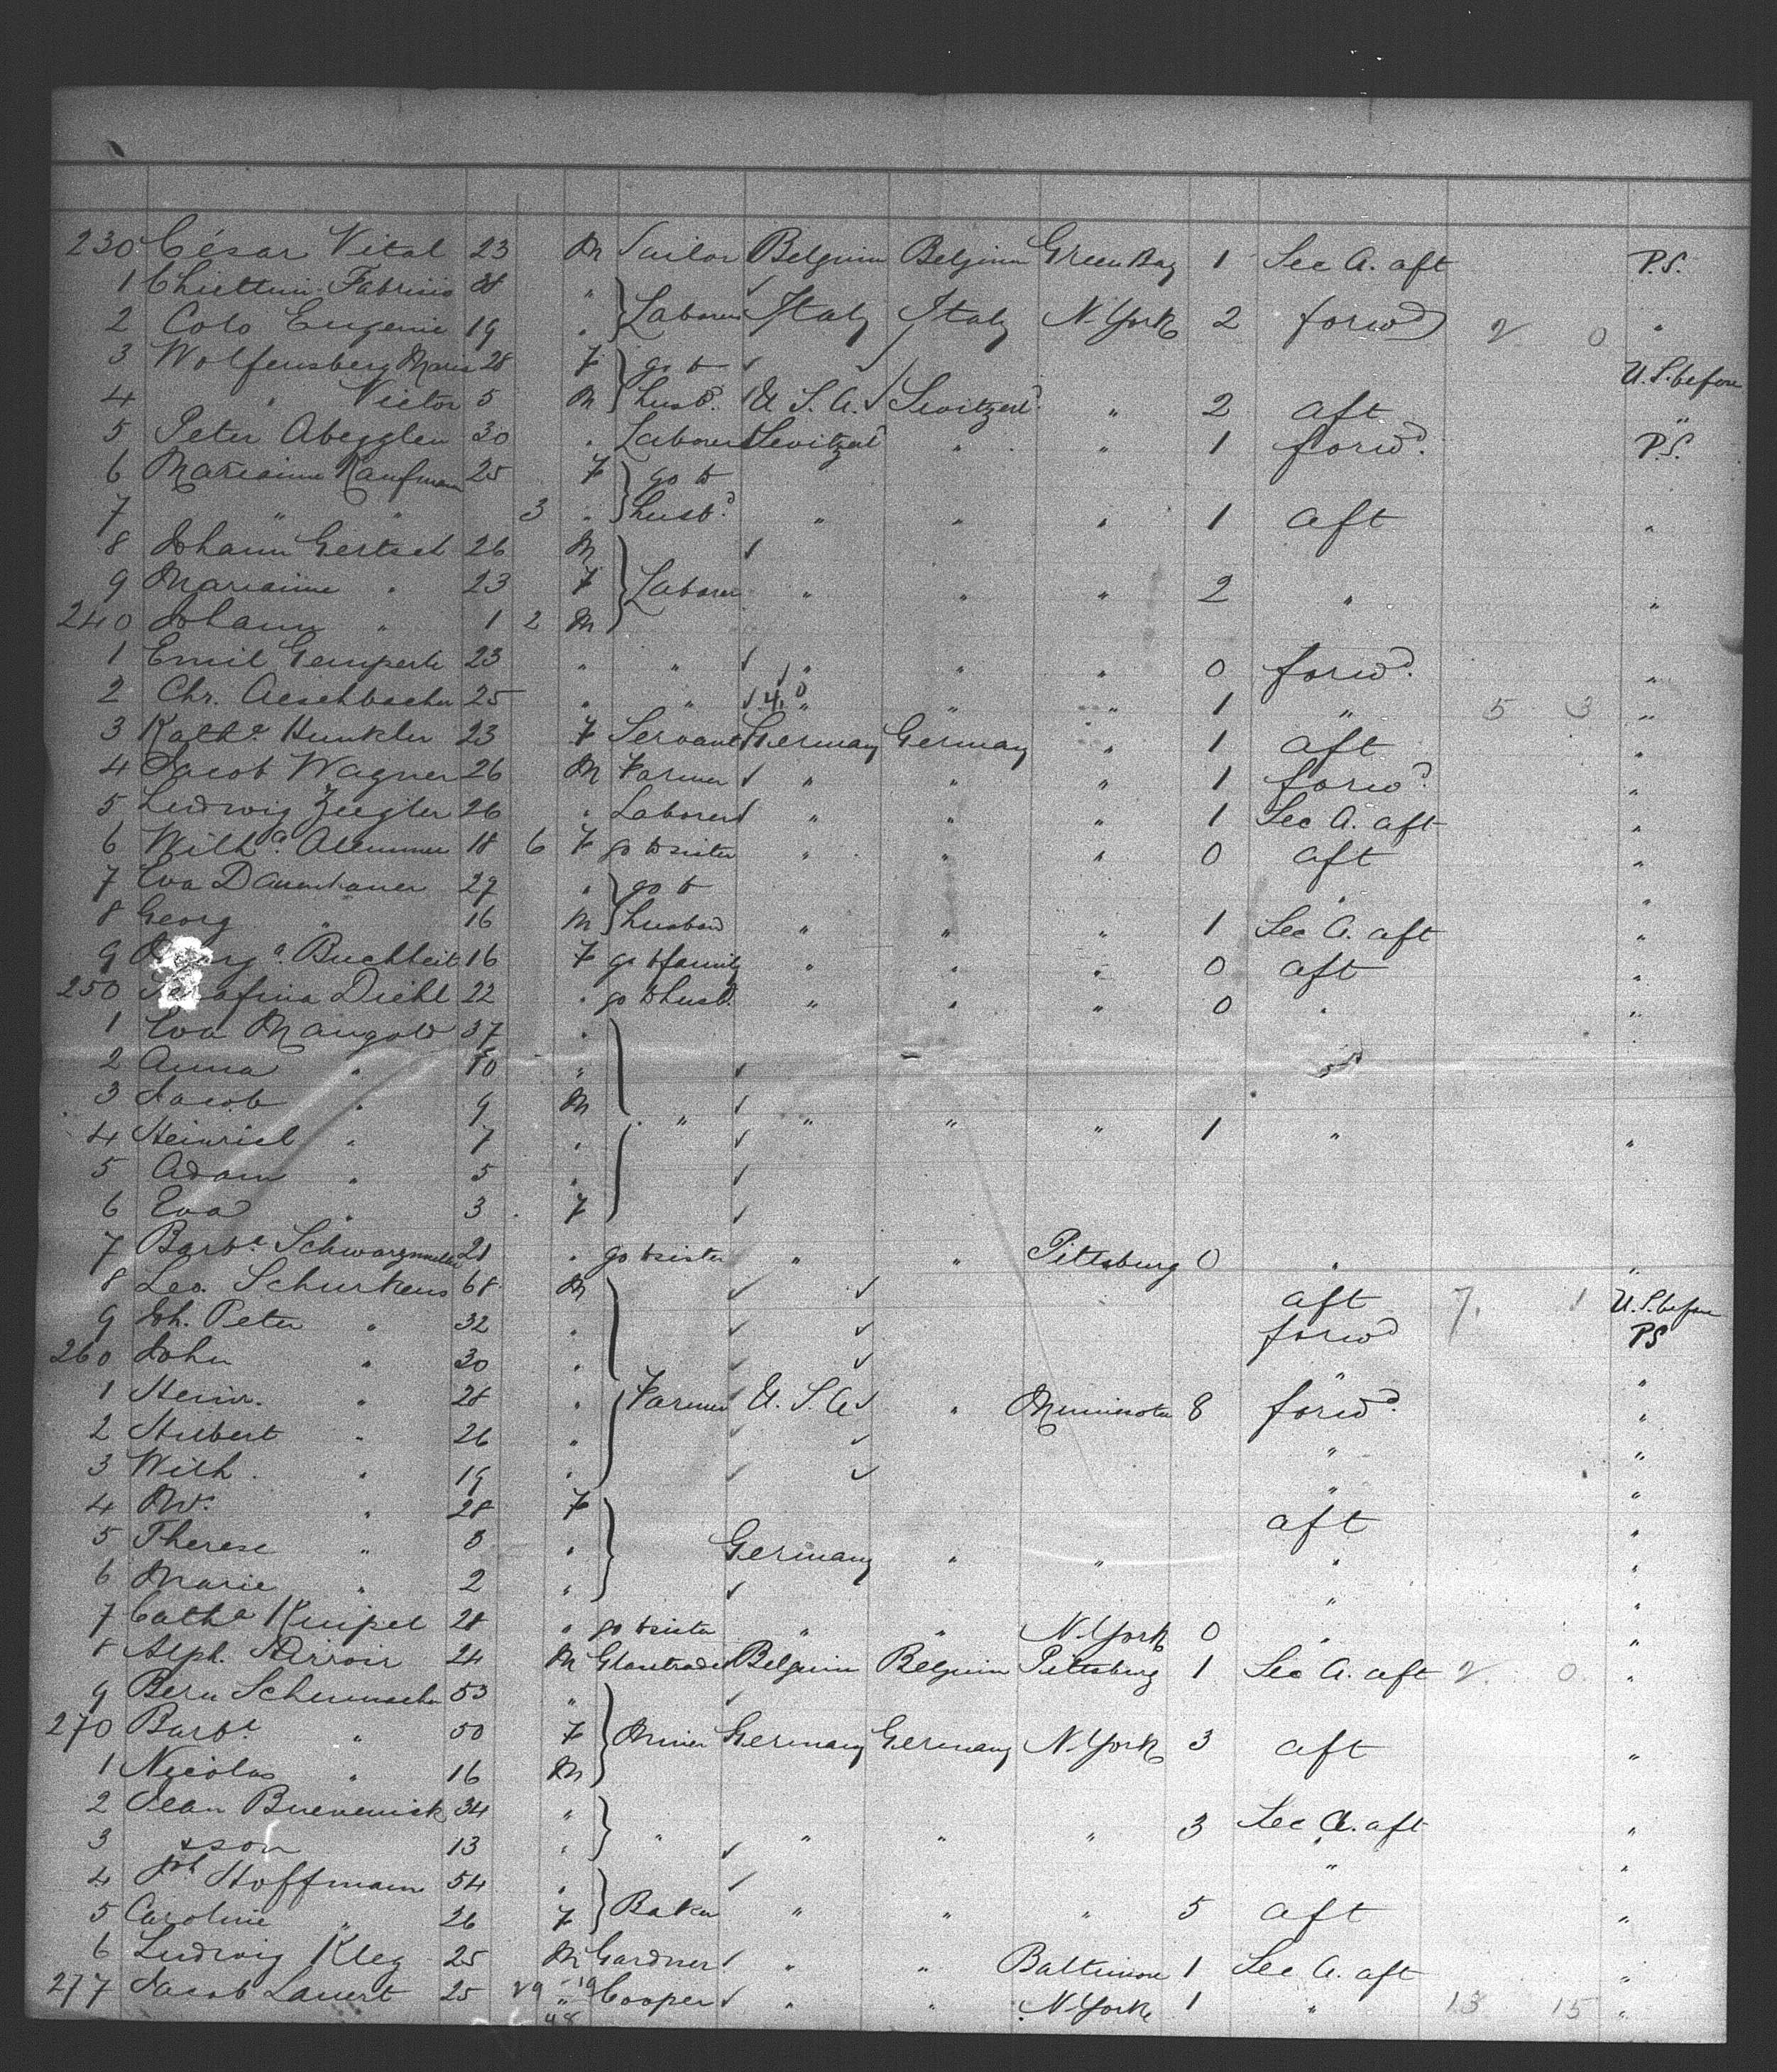 230 César Vital 23 M Sailor Belgium Belgium Green Bay 1 Sec A. aft P.S.
1 Fabrisio 28 "
2 Colo Eugenie 19 " Laborer Italy Italy N-York 2 forwd 2 0 "
3 Wolfensberg Maria 28 F go to U.S. before
4 " Victor 5 M husbd. U.S.A. Switzerld. " 2 aft "
5 Peter Abegglen 30 " Laborer Switzerld " " 1 forwd. P.S.
6 Marianne Kaufmann 25 F go to
7 " " 3 " husbd. " " " 1 aft "
8 Johann Gertsch 26 M
9 Marianne " 23 F Laborer " " " 2 " "
240 Johann " 1 2 M
1 Emil Gemperle 23 " " " " " 0 forwd. "
2 Chr. Aeschbacher 25 " " " " " 1 " 5 3 "
3 Kathe. Hunkler 23 F Servant Germany Germany " 1 aft "
4 Jacob Wagner 26 M Farmer " " " 1 forwd. "
5 Ludwig Ziegler 26 " Laborer " " " 1 Sec A. aft "
6 Wilha. 18 6 F go to sister " " " 0 aft "
7 Eva Dauenhauer 27 " go to " "
8 Georg " 16 M husband " " " 1 Sec A. aft "
9 Buchleit 16 F go to family " " " 0 aft "
250 Serafina Diehl 22 " go to husbd. " " " 0 " "
1 Eva Mangold 37 "
2 Anna " 10 "
3 Jacob " 9 M " " " "
4 Heinrich " 7 " 1 " "
5 Adam " 5 "
6 Eva " 3 F
7 Barbe. Schwarzmuller 21 " go to sister " " Pittsburg 0 " "
8 Leo. Schurkens 68 M aft 7. 1 U.S. before
9 Joh. Peter " 32 " forwd PS
260 John " 30 " " "
1 Heinr. " 28 " Farmer U.S.A. " Minnisota 8 forwd. "
2 Hubert " 26 " " "
3 Wilh. " 19 " " "
4 " 28 F aft "
5 Therese " 3 " Germany " " " "
6 Marie " 2 " " "
7 Catha Knipel 28 " go to sister " " N-York 0 " "
8 Alph. 24 M Belgium Belgium Pittsburg 1 Sec A. aft 2. 0 "
9 Bern Schumacher 53 "
270 Barbe. " 50 F Miner Germany Germany N-York 3 aft "
1 Nicolas " 16 M
2 Jean 34 " 3 Sec A. aft "
3 13 " " " " " " "
4 Joh Hoffmann 54 " "
5 Caroline " 26 F Baker " " " 5 aft "
6 Ludwig Kleg 25 M Gardner " " Baltimore 1 Sec A. aft "
277 Jacob Lauert 25 29 " 19 Cooper " " N-York 1 " 13 15 "
48